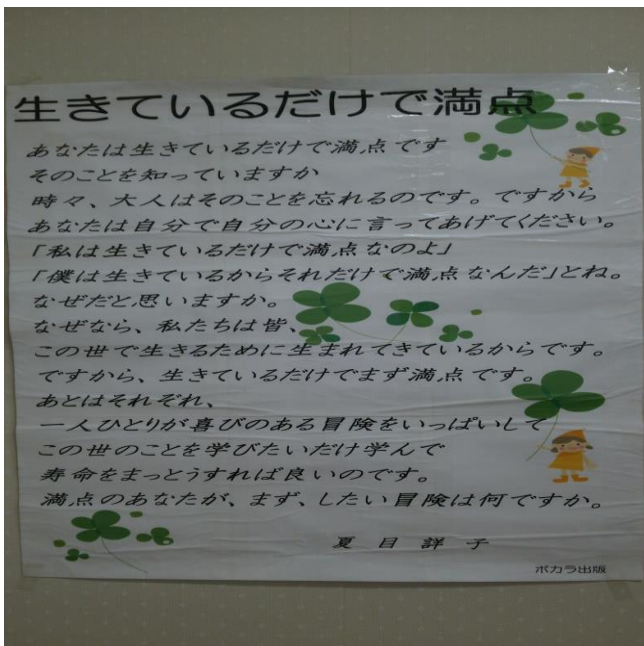 生きているだけで満点
あなたは生きているだけで満点です
そのことを知っていますか
時々、大人はそのことを忘れるのです。ですから
あなたは自分で自分の心に言ってあげてください。
「私は生きているだけで満点なのよ」
「僕は生きているからそれだけで満点なんだ」とね。
なぜだと思いますか。
なぜなら、私たちは皆、
この世で生きるために生まれてきているからです。
ですから、生きているだけでまず満点です。
あとはそれぞれ、
一人ひとりが喜びのある冒険をいっぱいして
この世のことを学びたいだけ学んで
寿命をまっとうすれば良いのです。
満点のあなたが、まず、したい冒険は何ですか。
夏目祥子
ポカラ出版